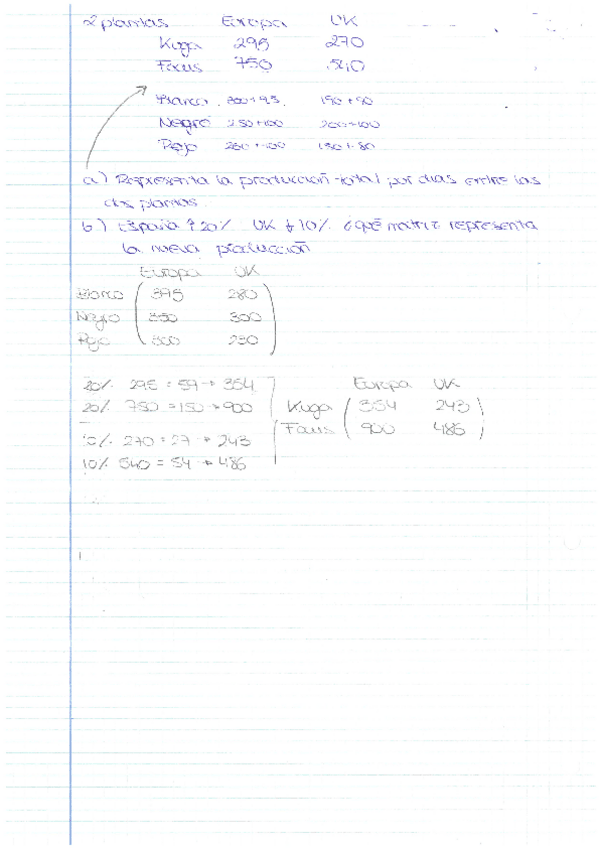 2 plantas Europa UK
Kuga 295 270
Focus 750 540
Blanco 300+95 190+90
Negro 250+100 200+100
Rojo 200+100 150+80
a.) Representa la producción total por días entre las
dos plantas
b.) España ↑20% UK ↓10% ¿qué matriz representa
la nueva producción
Europa UK
Blanco 395 280
Negro 350 300
Rojo 300 230
20% 295 = 59 → 354 Europa UK
20% 750 = 150 → 900 Kuga 354 243
10% 270 = 27 → 243 Focus 900 486
10% 540 = 54 → 486